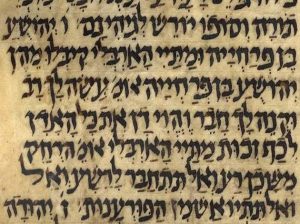 תורה וסופו יורש גיהנם ו יהושע
בן פרחייה ומתיי הארבלי קיבלו מהן
יהושע בן פרחייה אומ עשה לך רב
וקנה לך חבר והוי דן את כל האדן
לכף זכות מתיי הארבלי אומ הרחק
משכן רע ואל תתחבר לרשע ואל
ואל תתיאש מן הפורענות ז יהודה